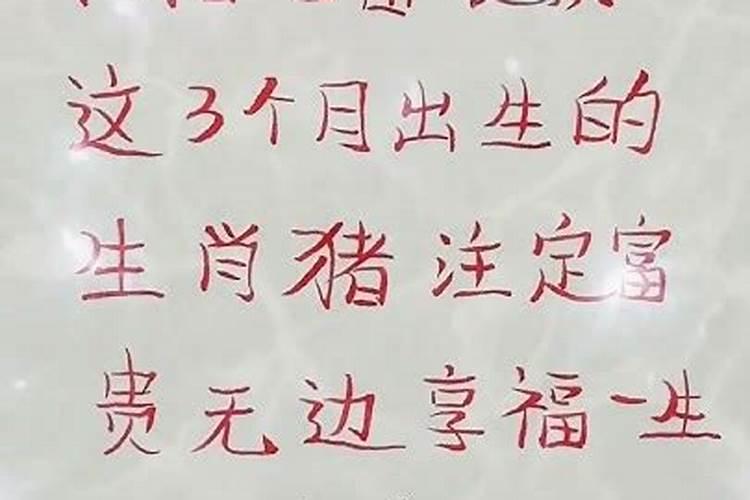 这3个月出生的
生肖猪注定富
贵无边享福一生